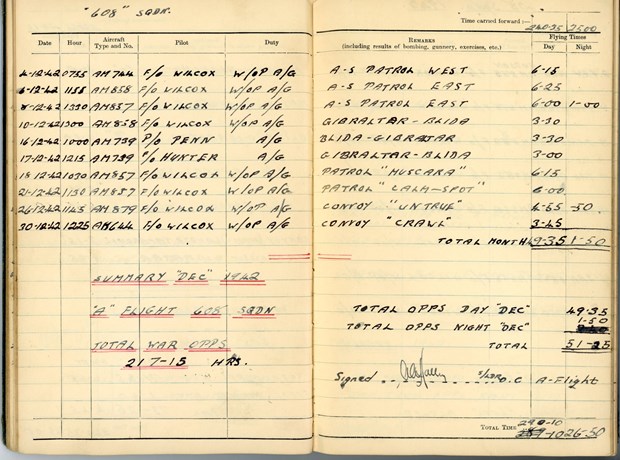 "608" SQDN.
Time carried forward:— 240-35 25-00
Date Hour Aircraft Type and No. Pilot Duty Remarks (including results of bombing, gunnery, exercises, etc.) Flying Times Day Night
4-12-42 0755 AM744 F/O WILCOX W/OP A/G A-S PATROL WEST 6-15
6-12-42 1155 AM858 F/O WILCOX W/OP A/G A-S PATROL EAST 6-25
8-12-42 1330 AM857 F/O WILCOX W/OP A/G A-S PATROL EAST 6-00 1-00
10-12-42 1300 AM858 F/O WILCOX W/OP A/G GIBRALTAR-BLIDA 3-30
16-12-42 1000 AM739 P/O PENN A/G BLIDA-GIBRALTAR 3-30
17-12-42 1215 AM739 P/O HUNTER A/G GIBRALTAR-BLIDA 3-00
18-12-42 1030 AM857 F/O WILCOX W/OP A/G PATROL "MUSCARA" 6-15
21-12-42 1130 AM857 F/O WILCOX W/OP A/G PATROL "CALM-SPOT" 6-00
26-12-42 1145 AM879 F/O WILCOX W/OP A/G CONVOY "UNTRUE" 4-55 -50
30-12-42 1225 AM644 F/O WILCOX W/OP A/G CONVOY "CRAWL" 3-45
TOTAL MONTH 49-35 1-50
SUMMARY "DEC" 1942
"A" FLIGHT 608 SQDN
TOTAL WAR OPPS
217-15 HRS.
TOTAL OPPS DAY "DEC" 49-35
TOTAL OPPS NIGHT "DEC" 1-50
TOTAL 51-25
Signed S/LDR O.C A-Flight
Total Time 290-10 26-50